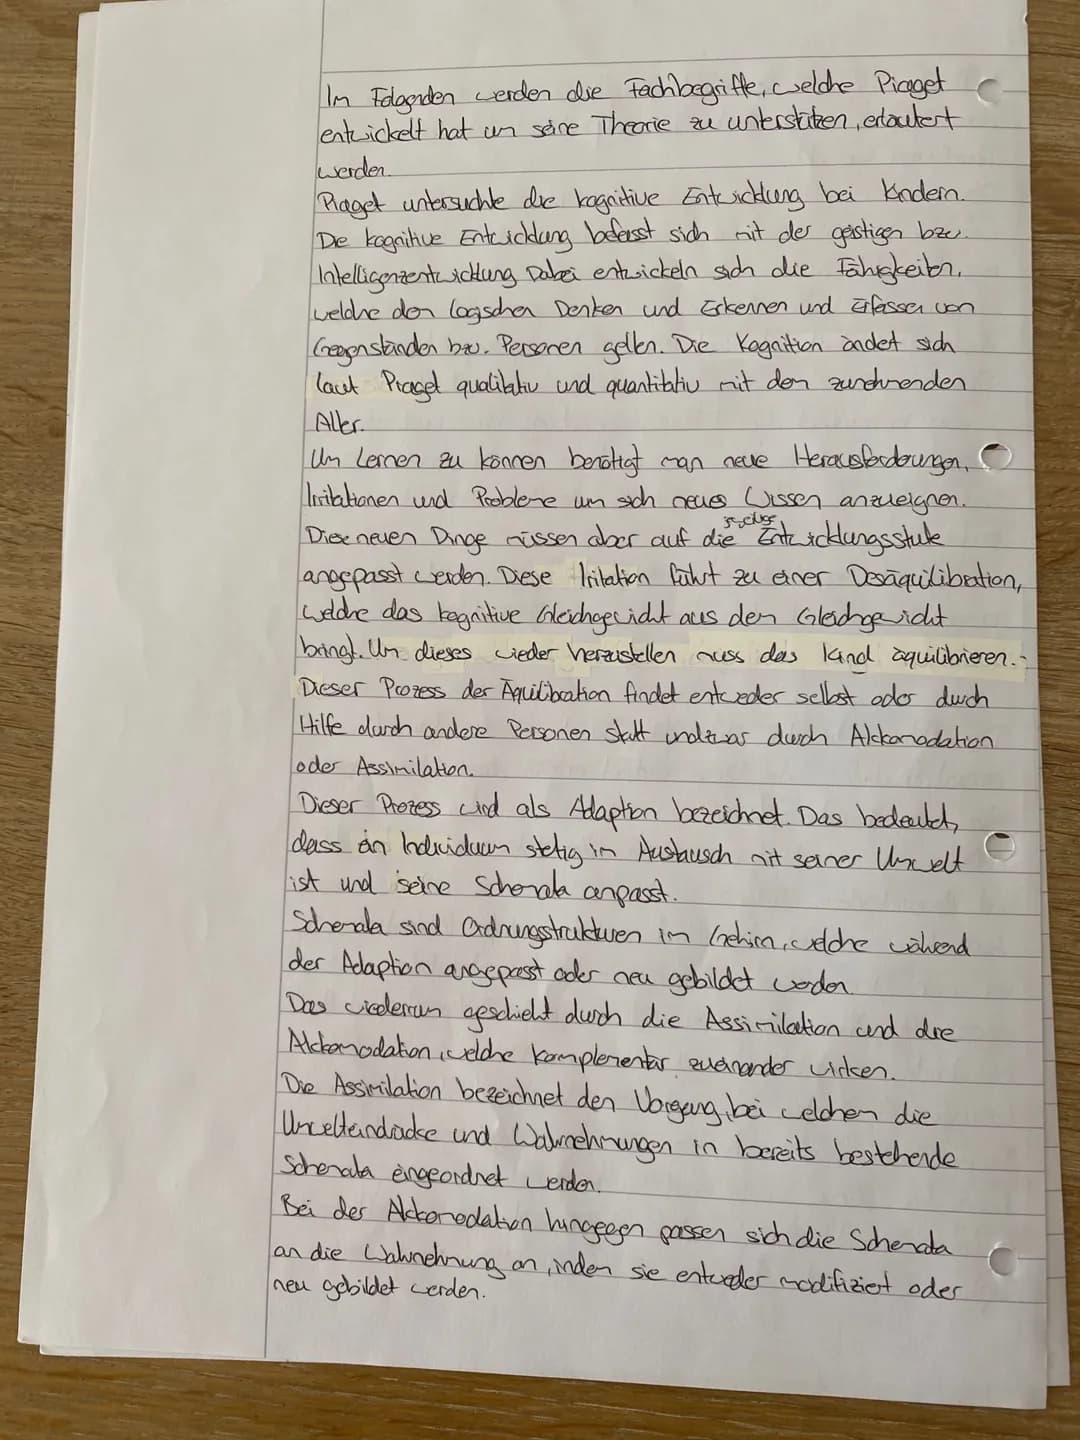 Im Folgenden werden die Fachbegriffe, welche Piaget
entwickelt hat um seine Theorie zu unterstützen, erläutert
werden.
Piaget untersuchte die kognitive Entwicklung bei Kindern.
Die kognitive Entwicklung befasst sich mit der geistigen bzw.
Intelligenzentwicklung. Dabei entwickeln sich die Fähigkeiten,
welche den logischen Denken und Erkennen und Erfassen von
Gegenständen bzw. Personen gelten. Die Kognition ändet sich
laut Piaget qualitativ und quantitativ mit dem zunehmenden
Alter.
Um Lernen zu können benötigt man neue Herausforderungen,
Irritationen und Probleme um sich neues Wissen anzueignen.
jeweilige
Diese neuen Dinge müssen aber auf die Entwicklungsstufe
angepasst werden. Diese Irritation führt zu einer Desäquilibration,
welche das kognitive Gleichgewicht aus dem Gleichgewicht
bringt. Um dieses wieder herzustellen muss das Kind äquilibrieren.
Dieser Prozess der Äquilibration findet entweder selbst oder durch
Hilfe durch andere Personen statt und zwar durch Akkomodation
oder Assimilation.
Dieser Prozess wird als Adaption bezeichnet. Das bedeutet,
dass ein Individuum stetig im Austausch mit seiner Umwelt
ist und seine Schemata anpasst.
Schemata sind Ordnungsstrukturen im Gehirn, welche während
der Adaption angepasst oder neu gebildet werden
Das wiederrum geschieht durch die Assimilation und die
Akkomodation, welche komplementär zueinander wirken.
Die Assimilation bezeichnet den Vorgang, bei welchem die
Umwelteindrücke und Wahrnehmungen in bereits bestehende
Schemata eingeordnet werden.
Bei der Akkomodation hingegen passen sich die Schemata
an die Wahrnehmung an, indem sie entweder modifiziert oder
neu gebildet werden.